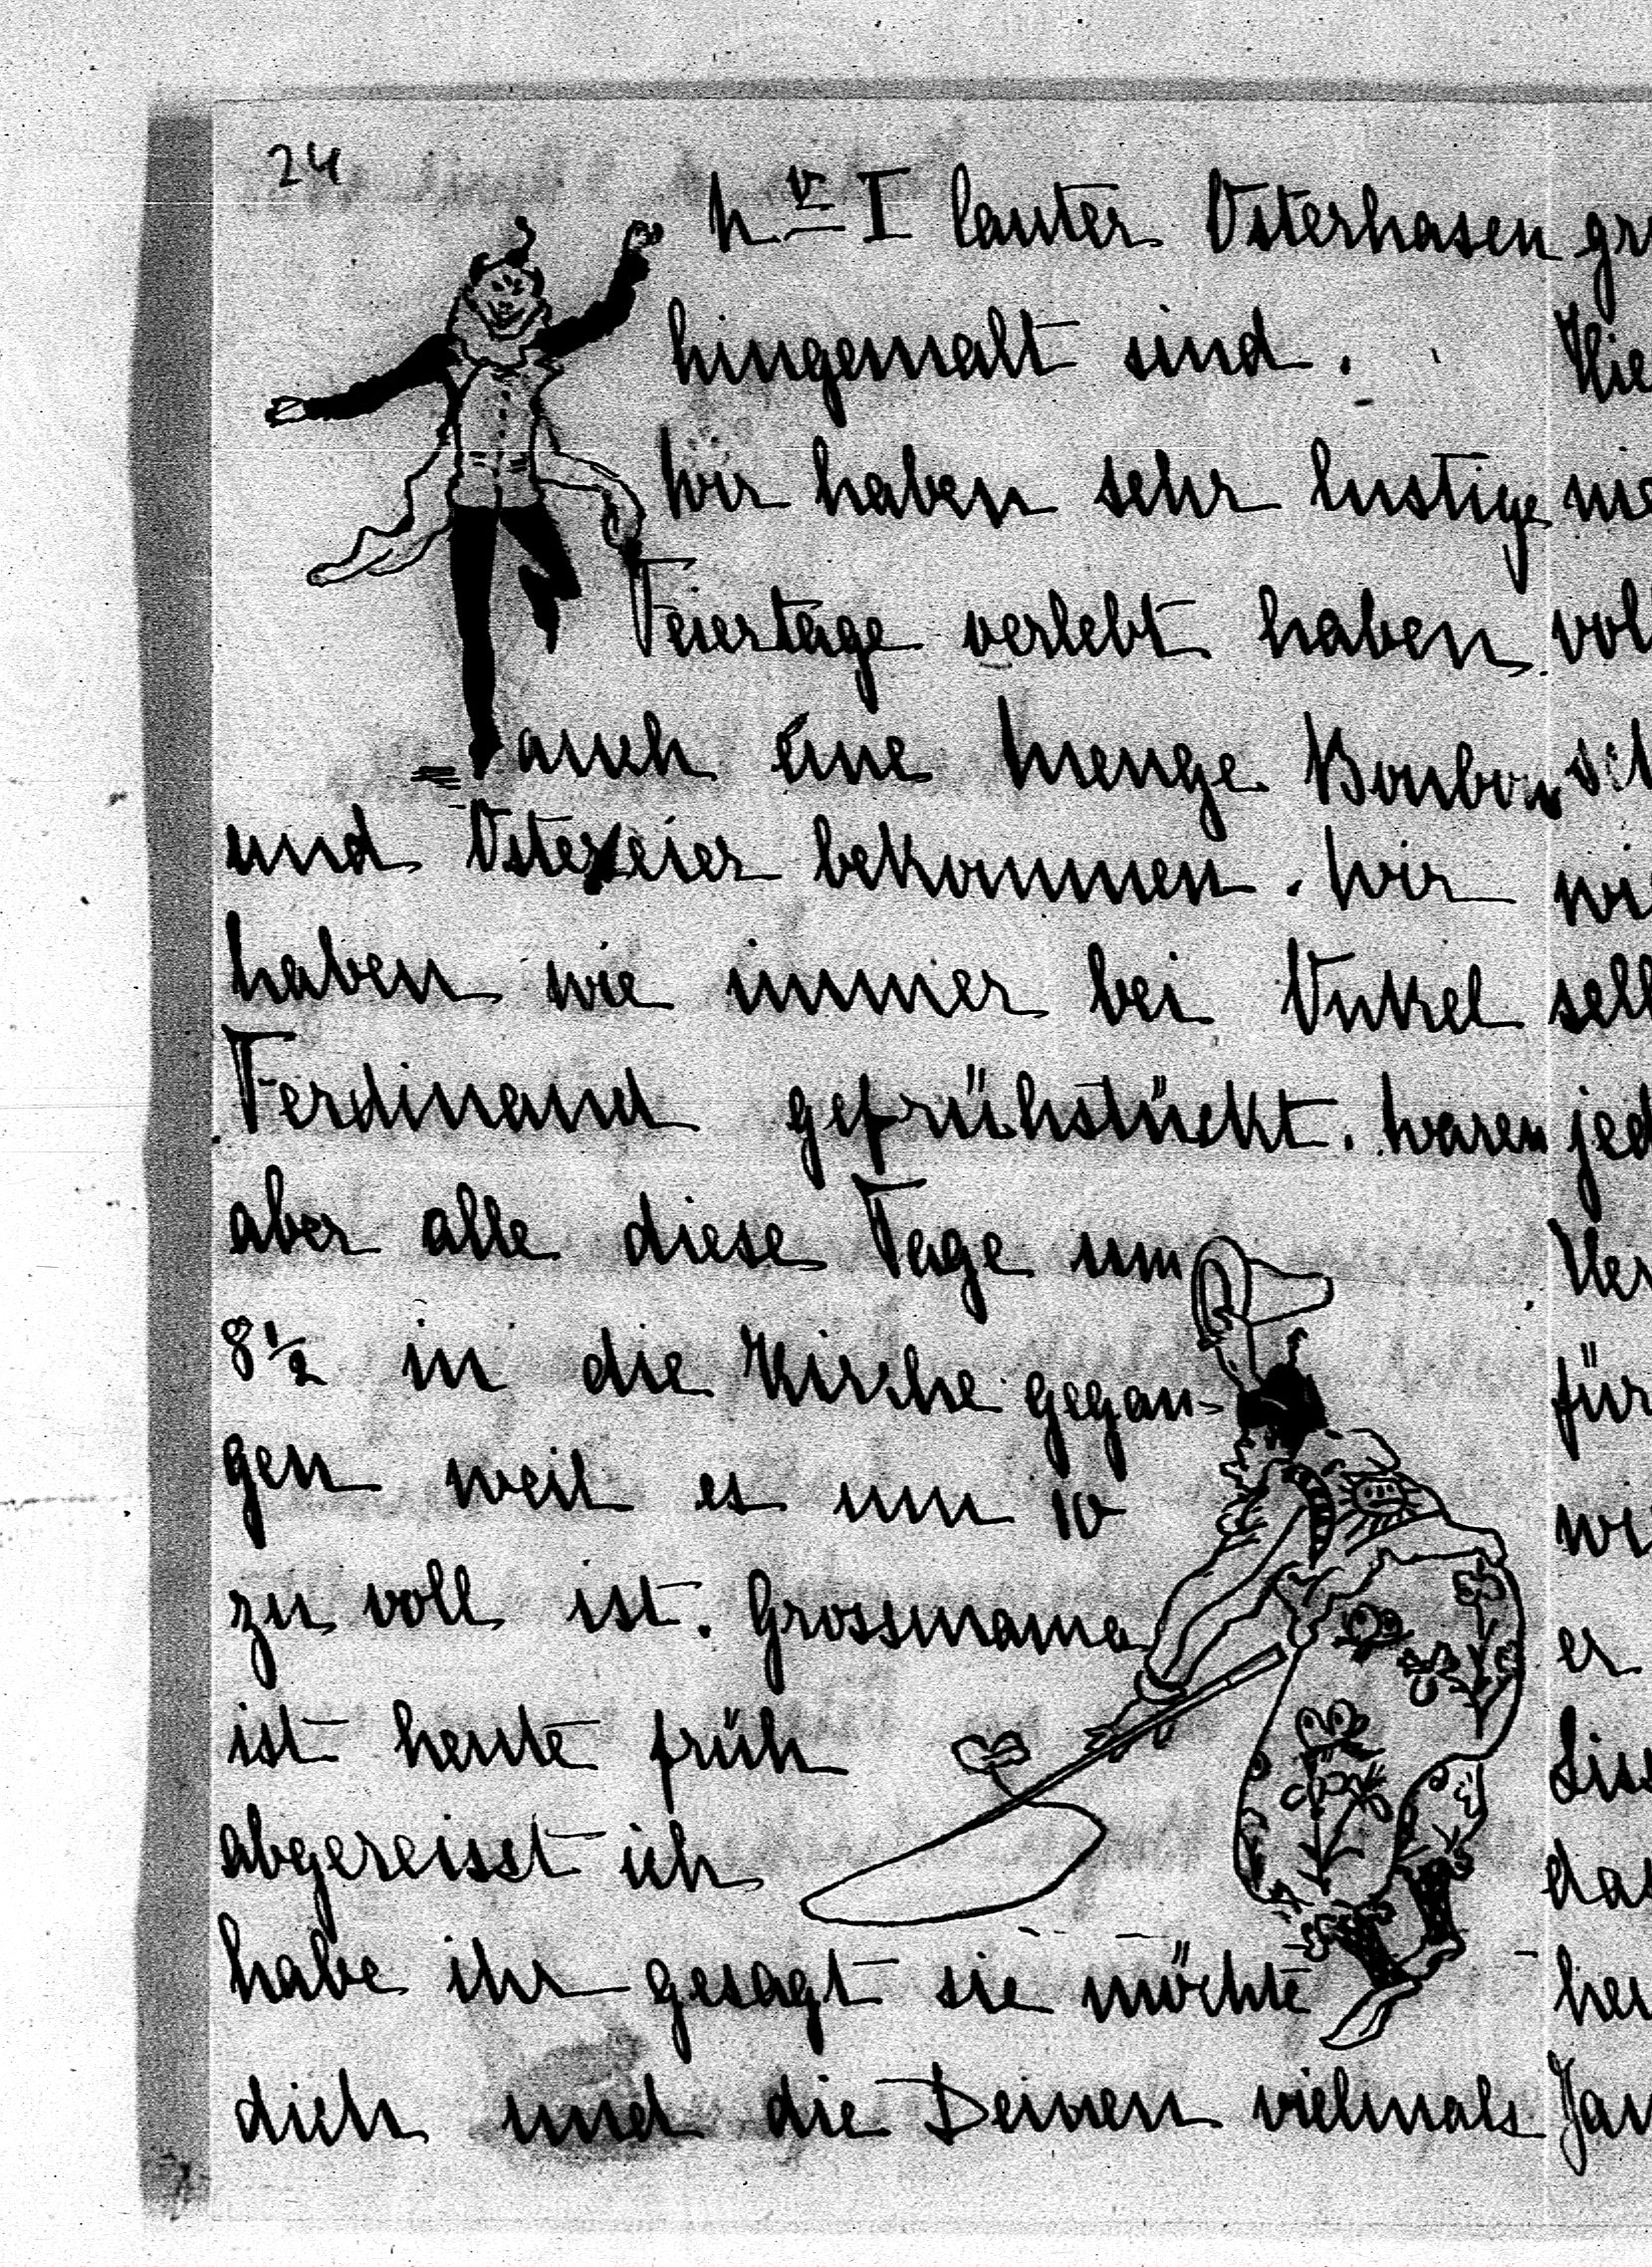 24
Nro I lauter Osterhasen
hingemalt sind.
Wir haben sehr lustige
Feiertage verlebt haben
auch eine Menge Bonbons
und Ostereier bekommen. Wir
haben wie immer bei Onkel
Ferdinand gefrühstückt. Waren
aber alle diese Tage um
8 1/2 in die Kirche gegan-
gen weil es um 10
zu voll ist. Grossmama
ist heute früh
abgereisst ich
habe ihr gesagt sie möchte
dich und die Deinen vielmals
für
er